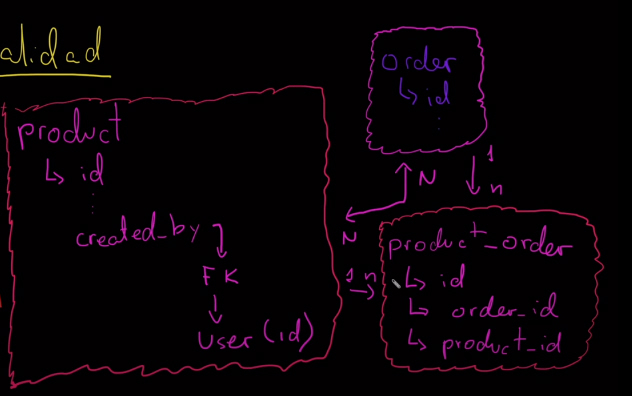 alidad
product
↳ id
⋮
created_by
FK
User (id)
order
↳ id
⋮
N
1
n
N
1 n
product_order
↳ id
↳ order_id
↳ product_id